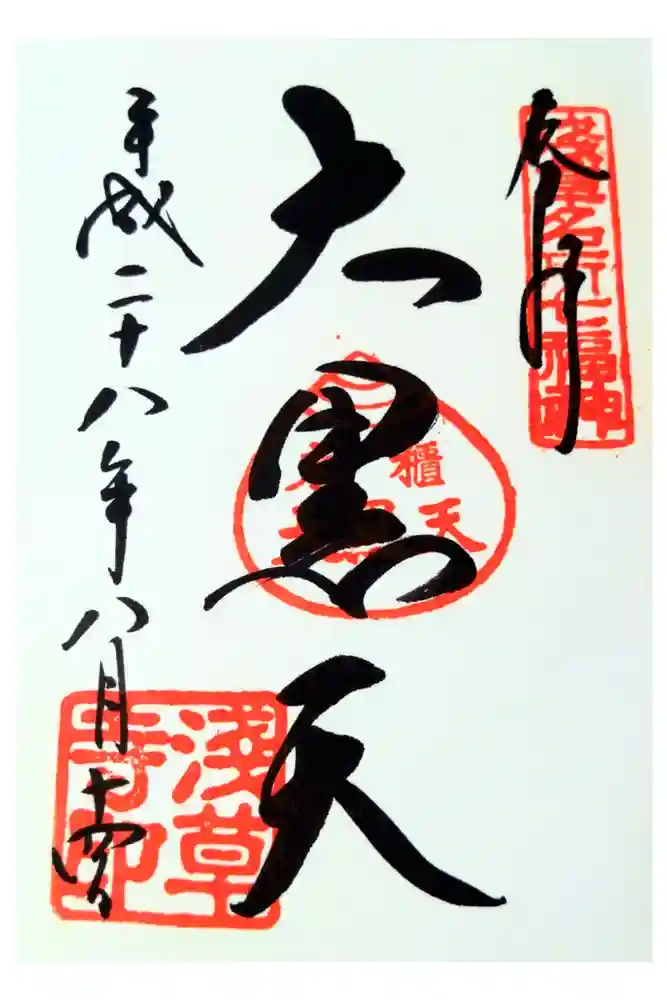 奉拝
淺草名所七福神
大黒天
櫃
天
平成二十八年八月十四日
淺草
寺印